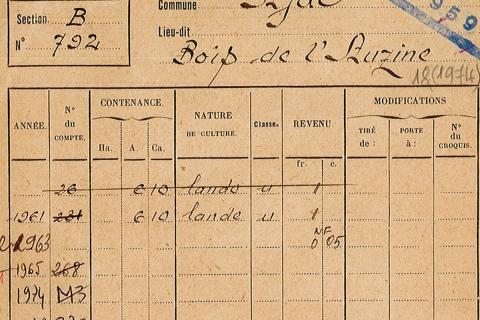 Section B
N° 792
Commune
Lieu-dit
Bois de l'Auzine
959
18(1974)
ANNÉE. N° du COMPTE. CONTENANCE. Ha. A. Ca. NATURE DE CULTURE. Classe. REVENU. fr. c. MODIFICATIONS TIRÉ de : PORTE à : N° du CROQUIS.
26 6 10 lande u 1
1961 231 6 10 lande u 1
1963 NF 0 05
1965 268
1974 M3